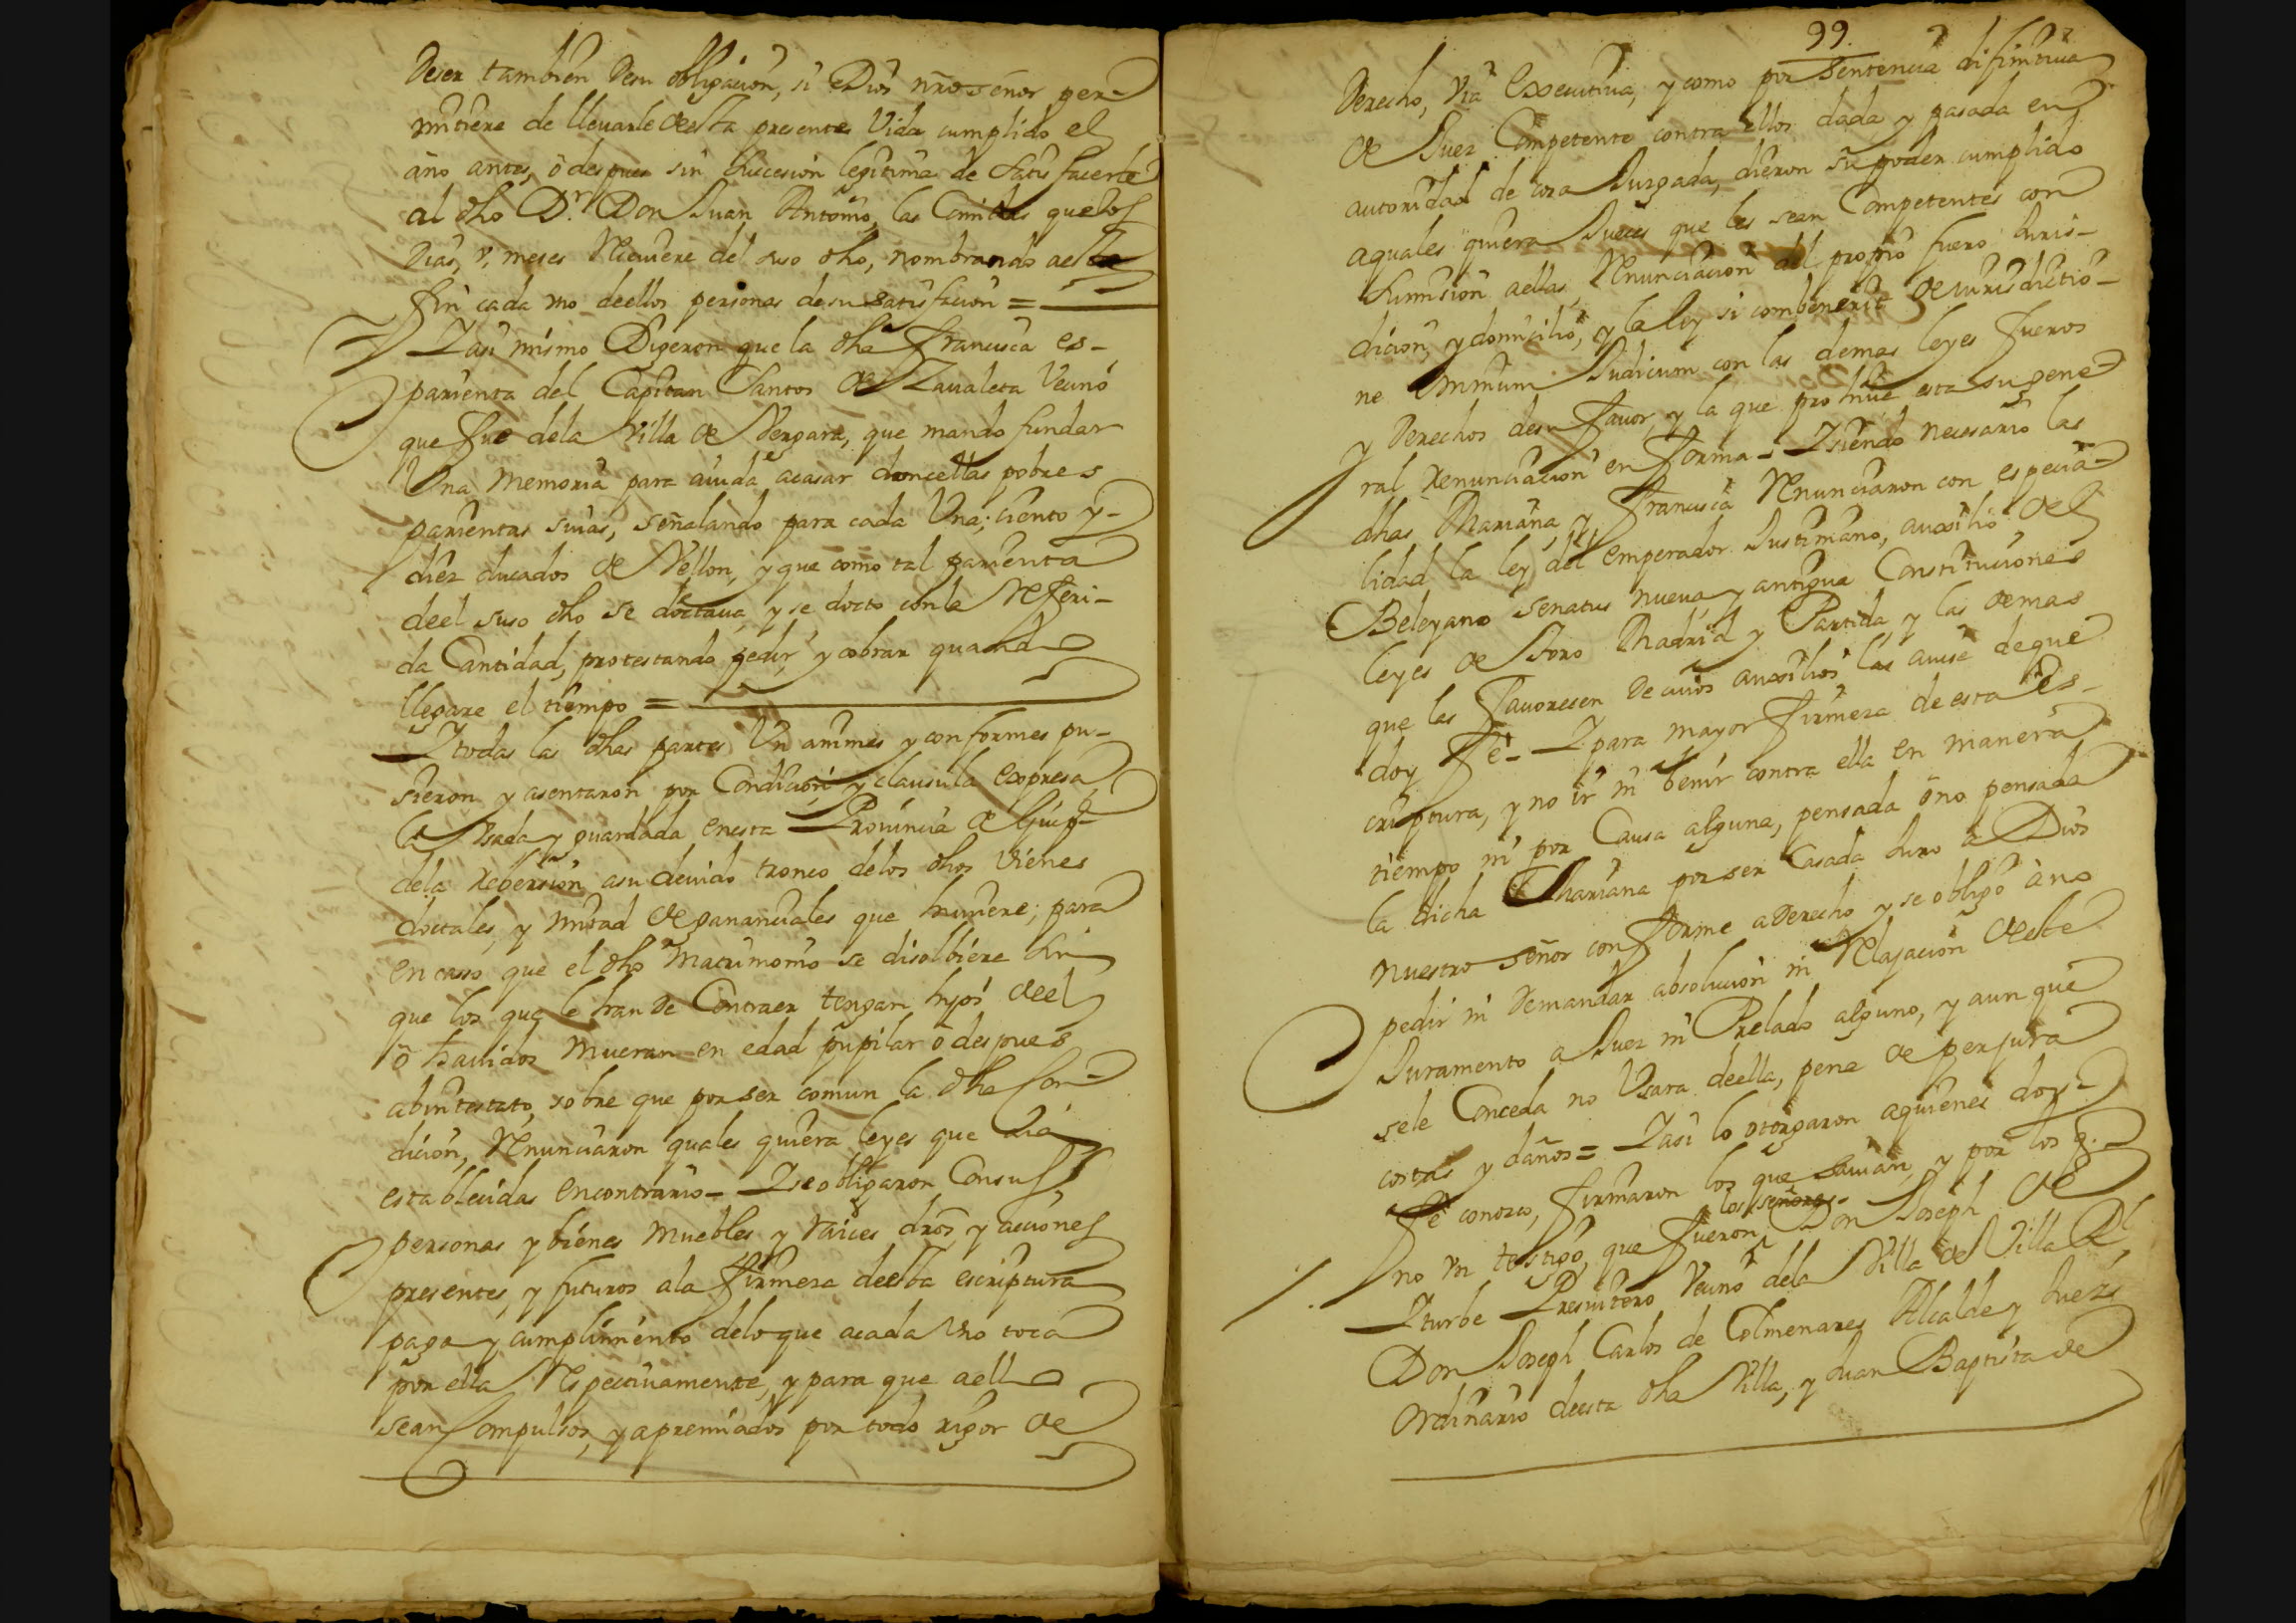 deser tambien desu obligacion, si Dios nro señor per-
mitiere de lleuarle de esta presente Vida cumplido el
año antes, o despues sin subcesion legitima de satisfacerle
al dho Dr. Don Juan Antonio, las Comidas que los
Dias, y, meses Reciuiere del suso dho, nombrando a esta
fin cada uno de ellos personas de su satisfacion =
Y asi mismo Digeron que la dha Francisca es-
parienta del Capitan Santos de Zaualeta Vecino
que fue dela Villa de Vergara, que mando fundar
Vna memoria para aiuda acasar doncellas pobres
parientas suias, señalando para cada Vna; ciento y-
diez ducados de Vellon, y que como tal parienta
deel suso dho se doctaua, y se docto con la Referi-
da Cantidad, protestando pedir, y cobrar quando
llegare el tiempo =
Y todas las dhas partes Vnanimes y conformes pu-
sieron y asentaron por Condicion, y clausula expresa
la Vsada y guardada en esta Prouincia de Guipza
dela Rebersion asu deuido tronco delos dhos Vienes
doctales, y mitad de gananciales que huuiere; para
en casso que el dho Matrimonio se disolbiere sin
que los que le han de Contraer tengan hijos deel
o hauidos mueran en edad pupilar o despues
abintestato, sobre que por ser comun la dha Con-
dicion, Renunciaron quales quiera leyes que aia
establecidas en contrario- Y se obligaron Con sus
personas y bienes muebles y raices dros, y acciones
presentes, y futuros ala firmeza deesta escriptura
paga y cumplimiento delo que acada Vno toca
por ella Respectiuamente, y para que aello
sean Compulsos, y apremiados por todo rigor de
99.
Derecho, via Executiua, y como por sentencia difinitiua
de Juez Competente contra ellos dada, y pasada en
autoridad de cosa Juzgada, dieron su poder cumplido
aquales quiera Jueces que les sean Competentes con
sumision aellas, Renunciacion del propio fuero Juris-
dicion, y domicilio, y la ley si combenerit de iurisdictio-
ne omnium Judicum con las demas leyes fueros
y Derechos desu fauor, y la que prohiue esta su gene-
ral renunciacion en forma- Y siendo necesario las
dhas Mariana, y Francisca Renunciaron con especia-
lidad la ley del emperador Justiniano, auxilio del
Beleyano senatus nueua, y antigua Constituciones
leyes de Toro Madrid y Partida y las demas
que las fauorescen de cuios auxilios las auise de que
doy fe- Y para mayor firmeza de esta Es-
criptura, y no ir ni benir contra ella en manera
tiempo ni por Causa alguna, pensada o no pensada
la dicha Mariana por ser Casada Juro a Dios
nuestro señor conforme a Derecho y se obligo à no
pedir ni Demandar absolucion ni Relajacion deeste
Juramento a Juez ni Prelado alguno, y aun que
sele Conceda no Vsara deella, pena de perjura
costas y daños = Y asi lo otorgaron aquienes doy
fe conozco, firmaron los que sauian, y por los q.
no vn testigo, que fueron los señores Don Joseph de
Yturbe Presuitero Vecino dela Villa de Villa Rl,
Don Joseph Carlos de Colmenares Alcalde y Juez
Ordinario deesta dha Villa, y Juan Baptista de